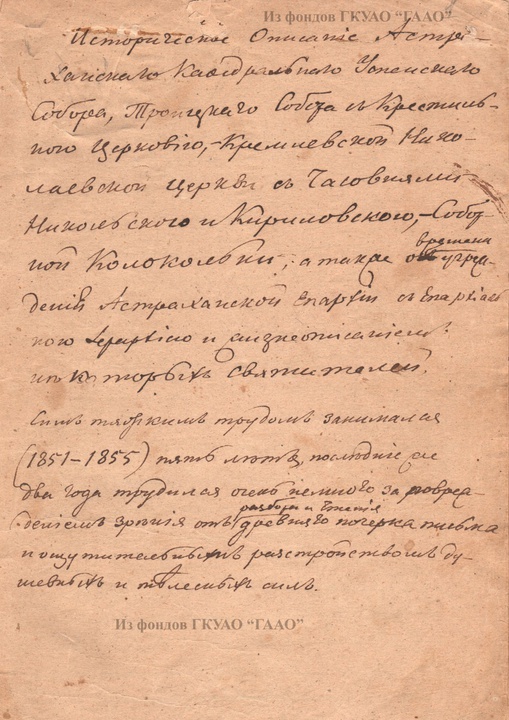 Из фондов ГКУАО “ГААО”
Историческое Описание Астра-
ханскаго Каѳедральнаго Успенскаго
Собора, Троицкаго Собора съ Крестиль-
ного Церковію, Кремлевской Нико-
лаевской Церкви съ Часовнями
Никольского и Кириловского, Собор-
ной Колокольни; а также
времени
о учреж-
деніи Астраханской Епархіи съ Епархіаль-
ного и жизнеописаніемъ
которыхъ святителей.
Симъ тяжкимъ трудомъ занимался
(1851-1855) пять лѣтъ, послѣдніе же
два года трудился очень немного за повреж-
деніемъ зрѣнія отъ
разбора и чтенія
древняго почерка письма
и ощутительнымъ разстройствомъ ду-
шевныхъ и тѣлесныхъ силъ.
Из фондов ГКУАО “ГААО”